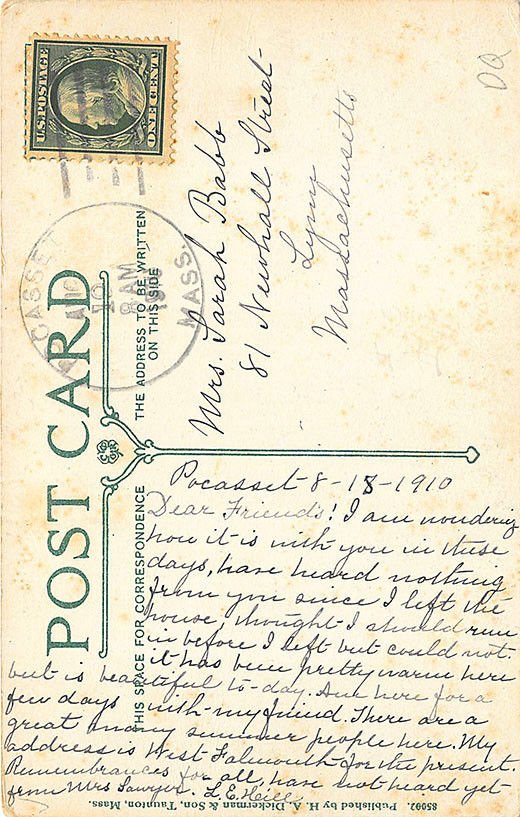 U.S. POSTAGE
ONE CENT
MASS.
8 AM
POST CARD
THE ADDRESS TO BE WRITTEN
ON THIS SIDE
THIS SPACE FOR CORRESPONDENCE
Mrs. Sarah Babb
81 Newhall Street
Lynn
Massachusetts
Pocasset 8-18-1910
Dear Friends! I am wondering
how it is with you in these
days, have heard nothing
from you since I left the
house, thought I should run
in before I left but could not.
it has been pretty warm here
but is beautiful to-day. Am here for a
few days with my friend. There are a
great many summer people here. My
address is West Falmouth for the present.
Remembrances for all, have not heard yet
from Mrs Sawyer. L. E.
85092. Published by H. A. Dickerman & Son, Taunton, Mass.
DQ